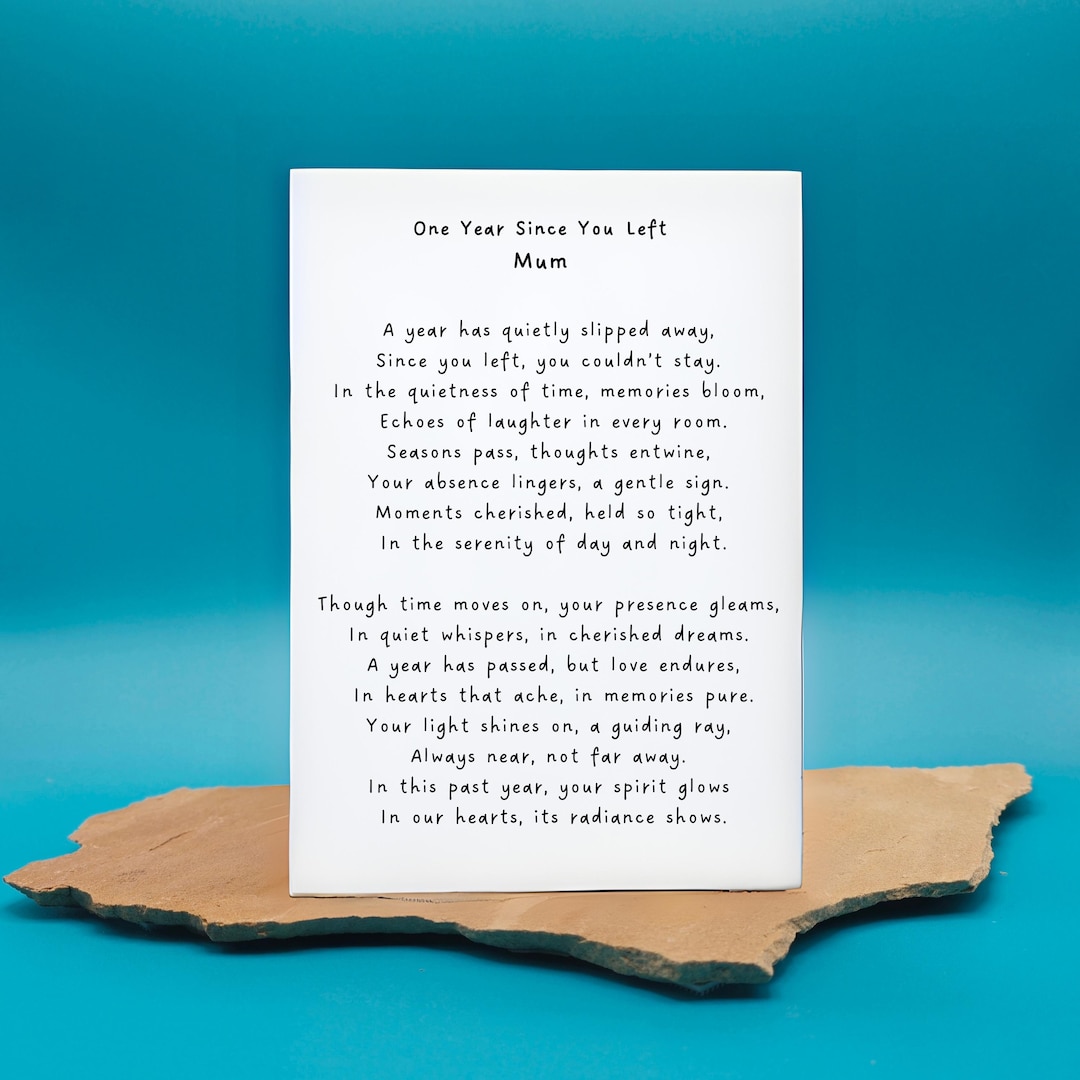 One Year Since You Left
Mum
A year has quietly slipped away,
Since you left, you couldn't stay.
In the quietness of time, memories bloom,
Echoes of laughter in every room.
Seasons pass, thoughts entwine,
Your absence lingers, a gentle sign.
Moments cherished, held so tight,
In the serenity of day and night.
Though time moves on, your presence gleams,
In quiet whispers, in cherished dreams.
A year has passed, but love endures,
In hearts that ache, in memories pure.
Your light shines on, a guiding ray,
Always near, not far away.
In this past year, your spirit glows
In our hearts, its radiance shows.